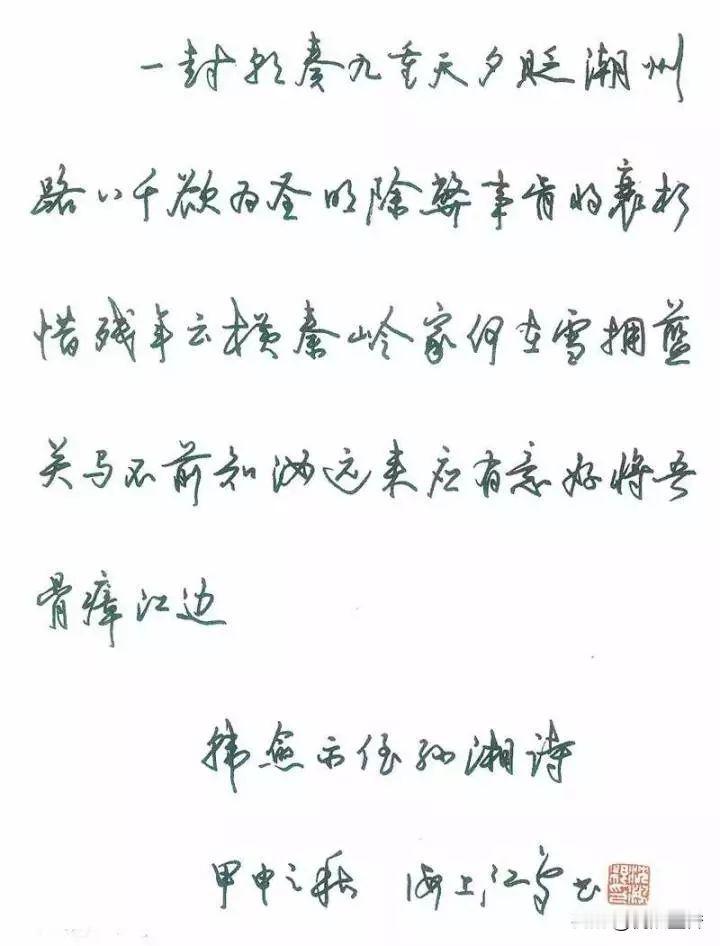 一封朝奏九重天夕贬潮州
路八千欲为圣明除弊事肯将衰朽
惜残年云横秦岭家何在雪拥蓝
关马不前知汝远来应有意好将吾
骨瘴江边
韩愈示侄孙湘诗
甲申之秋 海上江雪书